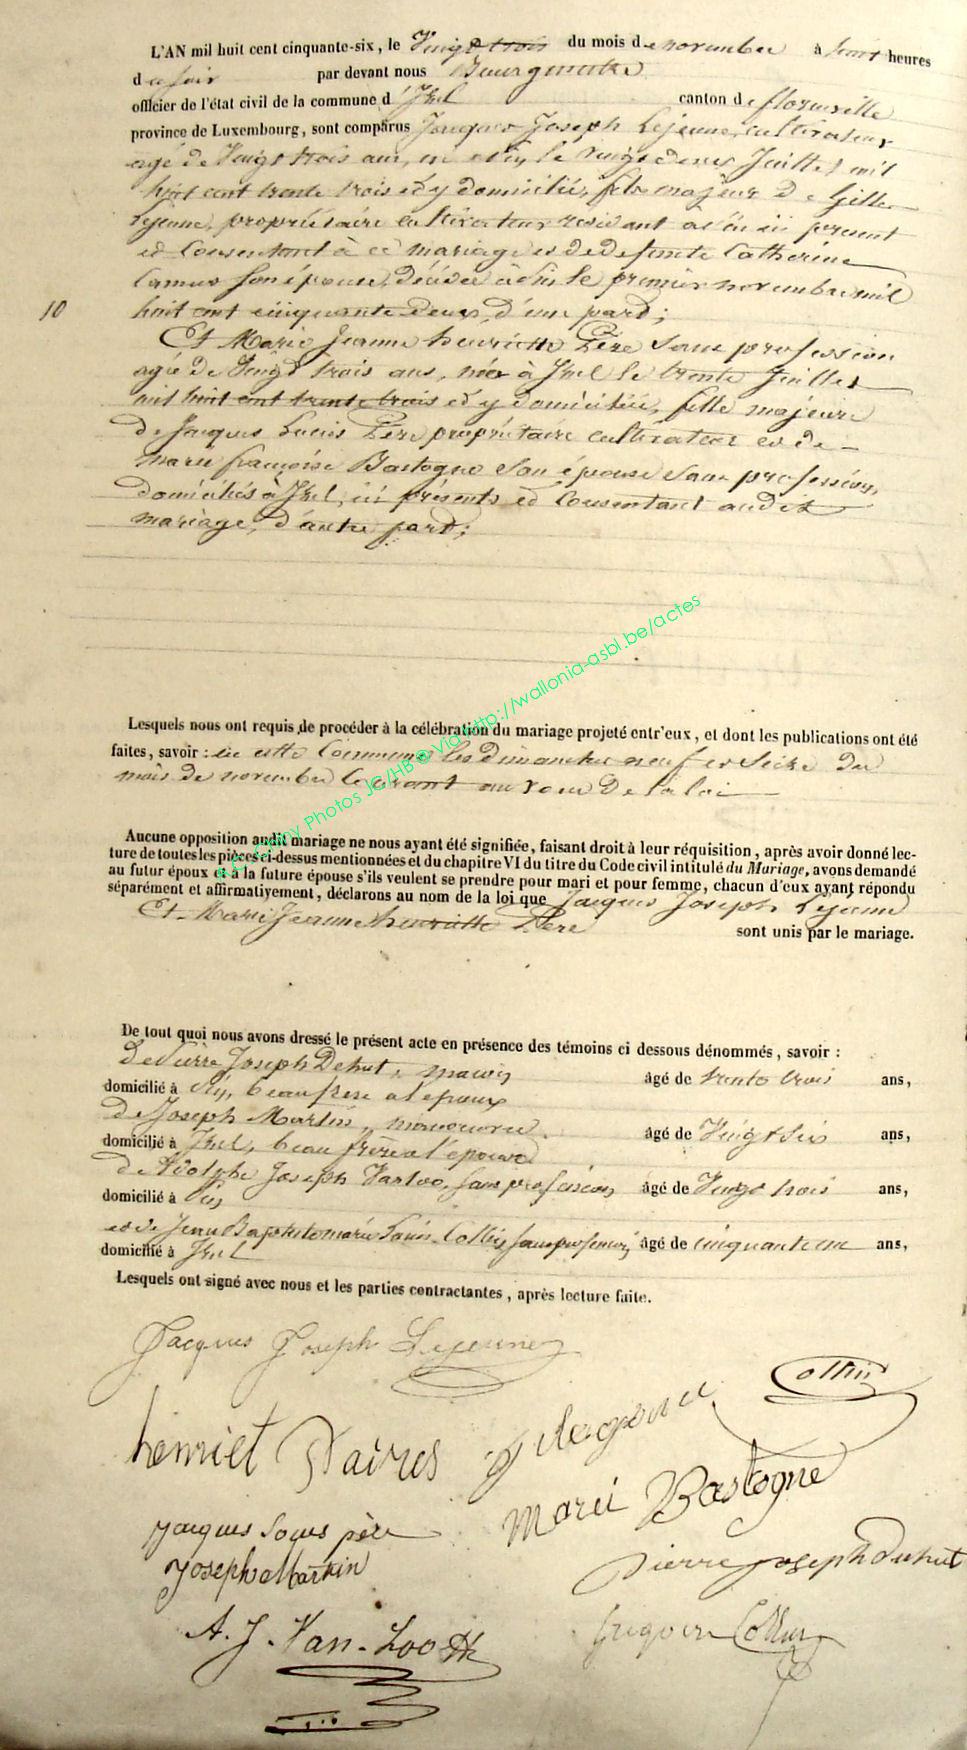 L'AN mil huit cent cinquante-six, le Vingt trois du mois de novembre à sept heures
du soir par devant nous Bourgmestre
officier de l'état civil de la commune d'Izel canton de florenville
province de Luxembourg, sont comparus Jacques Joseph Lejeune, cultivateur
agé de Vingt trois ans, né le vingt deux Juillet mil
huit cent trente trois et y domicilié, fils majeur de Gille
Lejeune, propriétaire cultivateur residant ici present
et Consentant à ce mariage et de defunte Catherine
Camus son épouse, décédée à le premier novembre mil
10 huit cent cinquante deux, d'une part;
Et Marie Jeanne henriette Père Sans profession
agée de Vingt trois ans, née à Izel le trente Juillet
mil huit cent trente trois et y domiciliée, fille majeure
de Jacques Louis Père propriétaire cultivateur et de
marie françoise Bastogne son épouse Sans profession,
domiciliés à Izel, ici présents et Consentant audit
mariage, d'autre part;
Lesquels nous ont requis de procéder à la célébration du mariage projeté entr'eux, et dont les publications ont été
faites, savoir : en cette Commune les dimanches neuf et Seize du
mois de novembre Courant au voeu de la loi
Aucune opposition audit mariage ne nous ayant été signifiée, faisant droit à leur réquisition, après avoir donné lec-
ture de toutes les pièces ci-dessus mentionnées et du chapitre VI du titre du Code civil intitulé du Mariage, avons demandé
au futur époux et à la future épouse s'ils veulent se prendre pour mari et pour femme, chacun d'eux ayant répondu
séparément et affirmativement, déclarons au nom de la loi que Jacques Joseph Lejeune
Et Marie Jeanne henriette Père sont unis par le mariage.
De tout quoi nous avons dressé le présent acte en présence des témoins ci dessous dénommés, savoir :
de Pierre Joseph Dehut, âgé de trente trois ans,
domicilié à beau frere a l'epoux
De Joseph Martin, manoeuvre âgé de Vingt six ans,
domicilié à Izel, beau frère a l'epouse
de Adolphe Joseph Vanloo, sans profession, âgé de Vingt trois ans,
domicilié à
et de Jean Baptiste marie Louis Collin sans profession, âgé de cinquante un ans,
domicilié à Izel
Lesquels ont signé avec nous et les parties contractantes, après lecture faite.
Jacques Joseph Lejeune
Collin
henriet Paires G Lejeune
Marie Bastogne
Jacques Louis père
Joseph Martin Pierre Joseph Duhut
A. J. Van-Loo
Collin
© Chiny Photos JG/HB © Via http://wallonia-asbl.be/actes